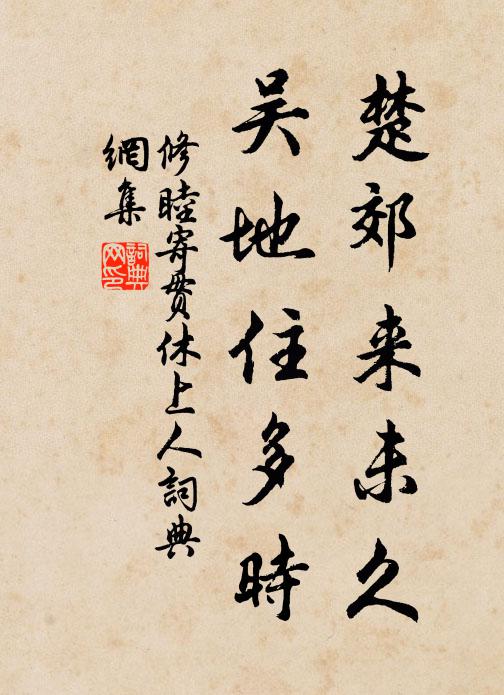 楚郊来未久
吴地住多時
修睦寄貫休上人詞典
網集
詞典網印